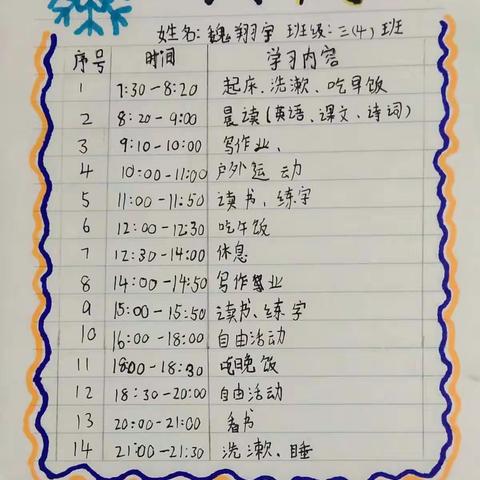 姓名:魏翔宇 班级:三(4)班
序号 时间 学习内容
1 7:30-8:20 起床、洗漱、吃早饭
2 8:20-9:00 晨读(英语、课文、诗词)
3 9:10-10:00 写作业、
4 10:00-11:00 户外运动
5 11:00-11:50 读书、练字
6 12:00-12:30 吃午饭
7 12:30-14:00 休息
8 14:00-14:50 写作业
9 15:00-15:50 读书、练字
10 16:00-18:00 自由活动
11 18:00-18:30 吃晚饭
12 18:30-20:00 自由活动
13 20:00-21:00 看书
14 21:00-21:30 洗漱、睡